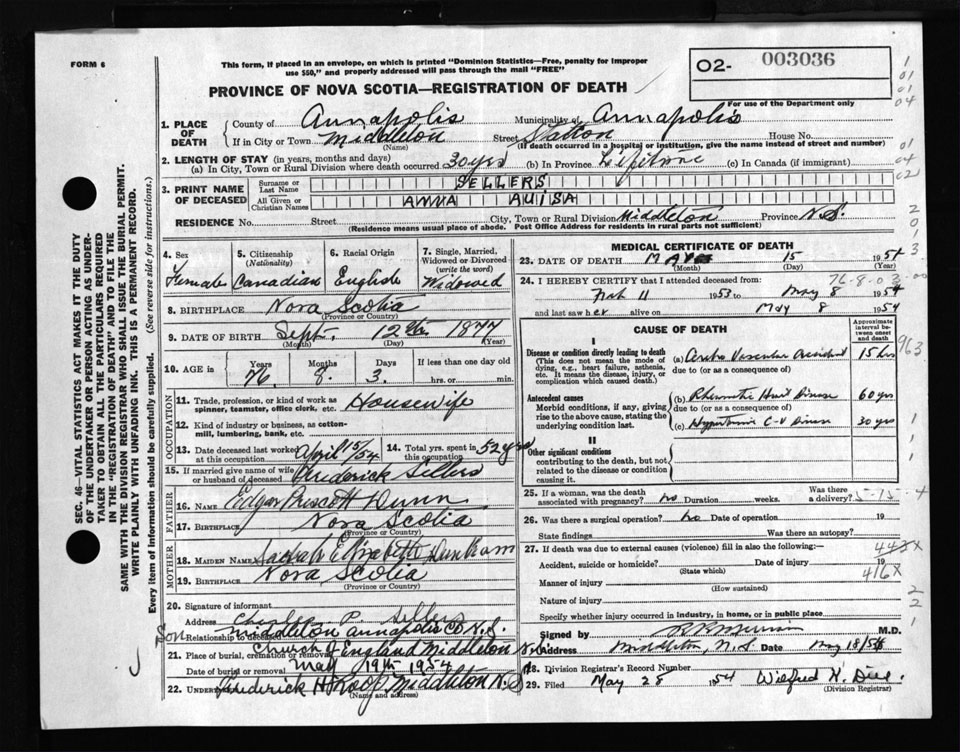 FORM 6
This form, if placed in an envelope, on which is printed "Dominion Statistics—Free, penalty for improper
use $50," and properly addressed will pass through the mail "FREE"
02- 003036
For use of the Department only
PROVINCE OF NOVA SCOTIA—REGISTRATION OF DEATH
1. PLACE OF DEATH
County of Annapolis Municipality of Annapolis
If in City or Town Middleton Street Station House No.
(Name) (If death occurred in a hospital or institution, give the name instead of street and number)
2. LENGTH OF STAY (in years, months and days)
(a) In City, Town or Rural Division where death occurred 30 yrs (b) In Province Lifetime (c) In Canada (if immigrant)
3. PRINT NAME OF DECEASED
Surname or Last Name SELLERS
All Given or Christian Names ANNA AUISA
RESIDENCE No. Street City, Town or Rural Division Middleton Province N.S.
(Residence means usual place of abode. Post Office Address for residents in rural parts not sufficient)
4. Sex Female
5. Citizenship (Nationality) Canadian
6. Racial Origin English
7. Single, Married, Widowed or Divorced (write the word) Widowed
8. BIRTHPLACE Nova Scotia
(Province or Country)
9. DATE OF BIRTH Sept. 12th 1877
(Month) (Day) (Year)
10. AGE in Years 76 Months 8 Days 3 If less than one day
hrs. or min.
OCCUPATION
11. Trade, profession, or kind of work as spinner, teamster, office clerk, etc. Housewife
12. Kind of industry or business, as cotton-mill, lumbering, bank, etc.
13. Date deceased last worked at this occupation April 15/54
14. Total yrs. spent in this occupation 52 yrs
15. If married give name of wife or husband of deceased Frederick Sellers
FATHER
16. NAME Edgar Prescott Dunn
17. BIRTHPLACE Nova Scotia
(Province or Country)
MOTHER
18. MAIDEN NAME Elizabeth Dunham
19. BIRTHPLACE Nova Scotia
(Province or Country)
20. Signature of informant Charles P. Sellers
Address Middleton Annapolis Co N.S.
Relationship to deceased Son
21. Place of burial, cremation or removal Church of England Middleton N.S.
Date of burial or removal May 19th 1954
22. Undertaker Frederick H Roop Middleton N.S
(Name and address)
MEDICAL CERTIFICATE OF DEATH
23. DATE OF DEATH MAY 15 1954
(Month) (Day) (Year)
76-8-03
24. I HEREBY CERTIFY that I attended deceased from:
11 1953 to May 8 1954
and last saw her alive on May 8 1954
CAUSE OF DEATH
Approximate interval between onset and death
I
Disease or condition directly leading to death
(This does not mean the mode of dying, e.g., heart failure, asthenia, etc. It means the disease, injury, or complication which caused death.)
(a) Cerebro Vascular Accident 15 hrs
due to (or as a consequence of)
Antecedent causes
Morbid conditions, if any, giving rise to the above cause, stating the underlying condition last.
(b) Rheumatic Heart Disease 60 yrs
due to (or as a consequence of)
(c) Hypertensive C-V Disease 30 yrs
II
Other significant conditions
contributing to the death, but not related to the disease or condition causing it.
963
25. If a woman, was the death associated with pregnancy? no Duration weeks. Was there a delivery?
5-15-4
26. Was there a surgical operation? no Date of operation 19
State findings Was there an autopsy?
27. If death was due to external causes (violence) fill in also the following:—
443X
416X
Accident, suicide or homicide? Date of injury 19
(State which)
Manner of injury
(How sustained)
Nature of injury
Specify whether injury occurred in industry, in home, or in public place
Signed by M.D.
Address Middleton, N.S Date May 18/54
28. Division Registrar's Record Number
29. Filed May 28 1954 Wilfred H.
(Division Registrar)
SEC. 46—VITAL STATISTICS ACT MAKES IT THE DUTY
OF THE UNDERTAKER OR PERSON ACTING AS UNDER-
TAKER TO OBTAIN ALL THE PARTICULARS REQUIRED
IN THE "REGISTRATION OF DEATH" AND TO FILE THE
SAME WITH THE DIVISION REGISTRAR WHO SHALL ISSUE THE BURIAL PERMIT.
WRITE PLAINLY WITH UNFADING INK. THIS IS A PERMANENT RECORD.
Every item of information should be carefully supplied. (See reverse side for instructions.)
1
01
01
04
01
04
02
2
0
1
3
1
1
1
1
2
2
1